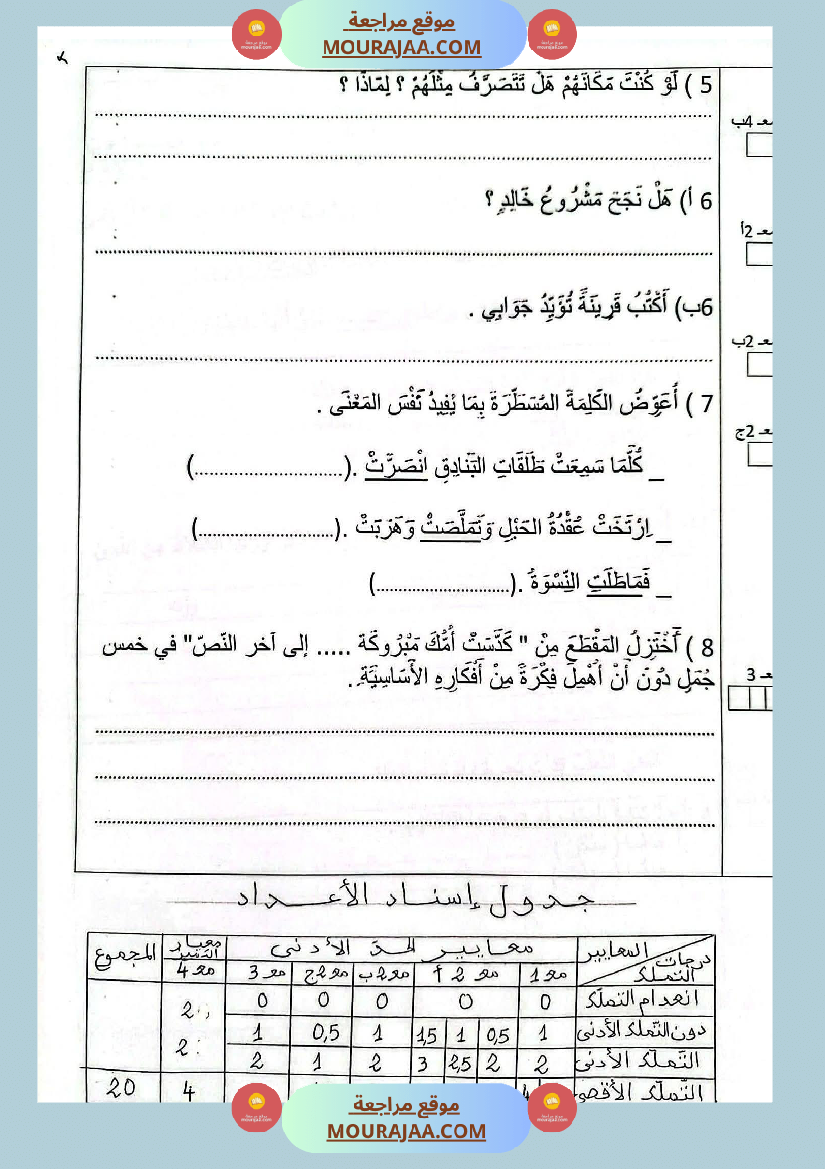 موقع مراجعة
MOURAJAA.COM
5 ) لَوْ كُنْتَ مَكَانَهُمْ هَلْ تَتَصَرَّفُ مِثْلَهُمْ ؟ لِمَاذَا ؟
معـ 4ب
6 أ) هَلْ نَجَحَ مَشْرُوعُ خَالِدٍ ؟
معـ 2أ
6ب) أَكْتُبُ قَرِينَةً تُؤَيِّدُ جَوَابِي .
معـ 2ب
7 ) أُعَوِّضُ الكَلِمَةَ المُسَطَّرَةَ بِمَا يُفِيدُ نَفْسَ المَعْنَى .
معـ 2ج
_ كُلَّمَا سَمِعَتْ طَلَقَاتِ البَنَادِقِ انْصَرَّتْ .(............................)
_ اِرْتَخَتْ عُقْدَةُ الحَبْلِ وَتَمَلَّصَتْ وَهَرَبَتْ .(............................)
_ فَمَاطَلَتِ النِّسْوَةُ .(............................)
8 ) أَخْتَزِلُ المَقْطَعَ مِنْ " كَدَّسَتْ أُمُّكَ مَبْرُوكَة ..... إلى آخر النّصّ" في خمس
جُمَلٍ دُونَ أَنْ أُهْمِلَ فِكْرَةً مِنْ أَفْكَارِهِ الأَسَاسِيَّةِ .
معـ 3
جدول إسناد الأعداد
المعايير درجات التملك معايير الحدّ الأدنى معيار التميز المجموع
معـ 1 معـ 2 أ معـ 2ب معـ 2ج معـ 3 معـ 4
انعدام التملك 0 0 0 0 0
دون التملك الأدنى 1 0,5 1 1,5 1 0,5 1 2
التملك الأدنى 2 2 2,5 3 2 1 2 2
التملك الأقصى 4 20
موقع مراجعة
MOURAJAA.COM